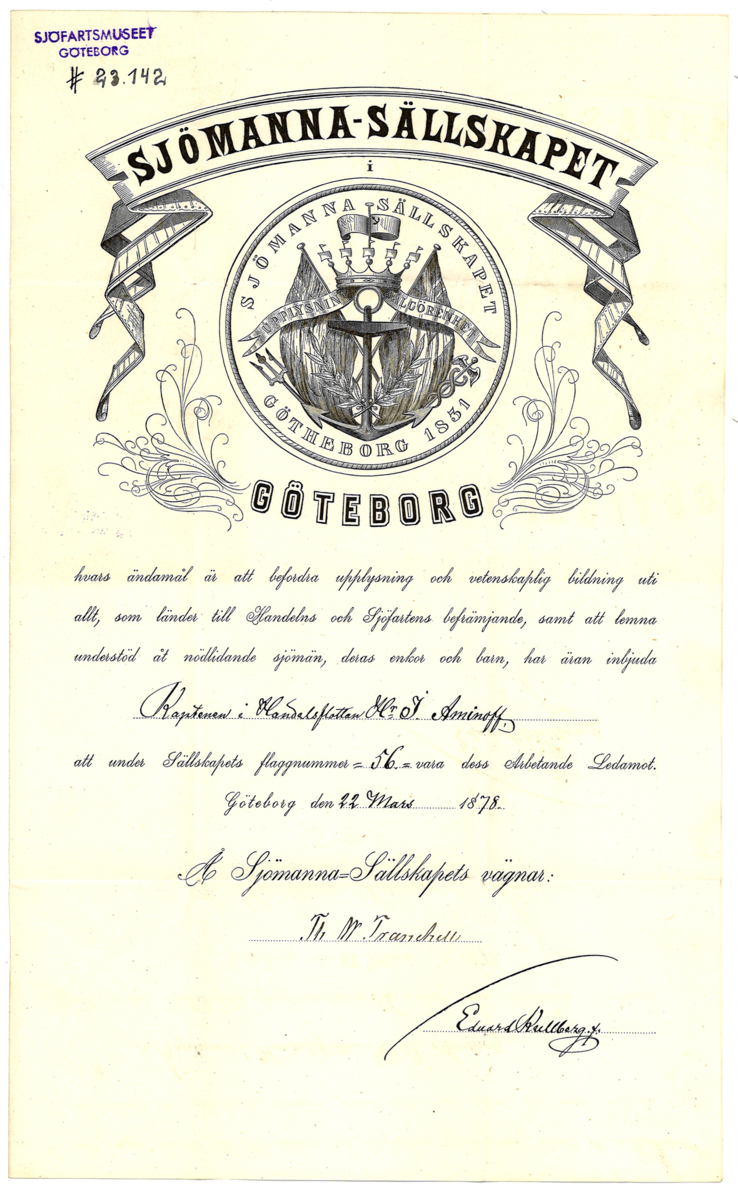 SJÖFARTSMUSEET
GÖTEBORG
# 23.142
SJÖMANNA-SÄLLSKAPET
i
SJÖMANNA SÄLLSKAPET
UPPLYSNIN ÄLGÖRENHET
GÖTHEBORG 1831
GÖTEBORG
hvars ändamål är att befordra upplysning och vetenskaplig bildning uti
allt, som länder till Handelns och Sjöfartens befrämjande, samt att lemna
understöd åt nödlidande sjömän, deras enkor och barn, har äran inbjuda
Kaptenen i Handelsflottan Hr. I. Aminoff,
att under Sällskapets flaggnummer = 56. = vara dess Arbetande Ledamot.
Göteborg den 22 Mars 1878.
Å Sjömanna=Sällskapets vägnar:
Th W. Tranchell
Eduard Kullberg.